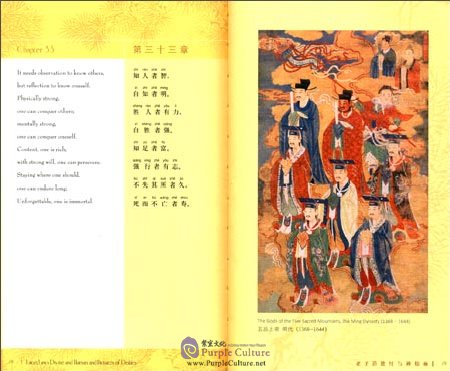 Chapter 33
第三十三章
It needs observation to know others,
but reflection to know oneself.
Physically strong,
one can conquer others;
mentally strong,
one can conquer oneself.
Content, one is rich;
with strong will, one can persevere.
Staying where one should,
one can endure long;
Unforgettable, one is immortal.
知人者智。
自知者明。
胜人者有力。
自胜者强。
知足者富。
强行者有志。
不失其所者久；
死而不亡者寿。
The Gods of the Five Sacred Mountains, the Ming Dynasty (1368 – 1644)
五岳上帝 明代 (1368–1644)
紫宸文化
Purple Culture
www.PurpleCulture.net
Laozi: Laws Divine and Human and Pictures of Deities